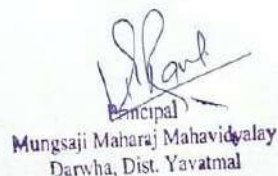 Principal
Mungsaji Maharaj Mahavidyalay
Darwha, Dist. Yavatmal